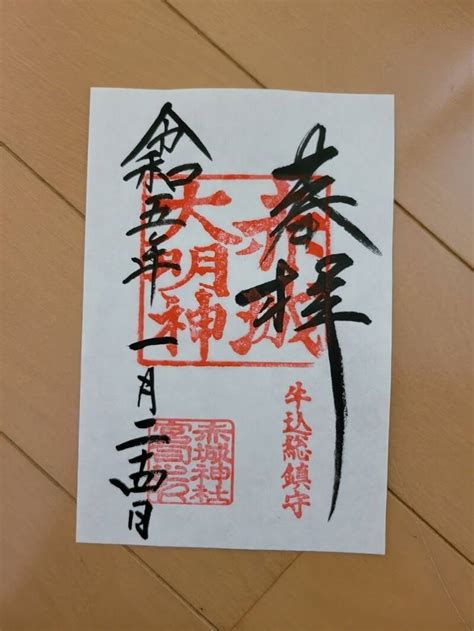 奉拝
赤城
大明神
牛込総鎮守
令和五年一月二十四日
赤城神社
宮司